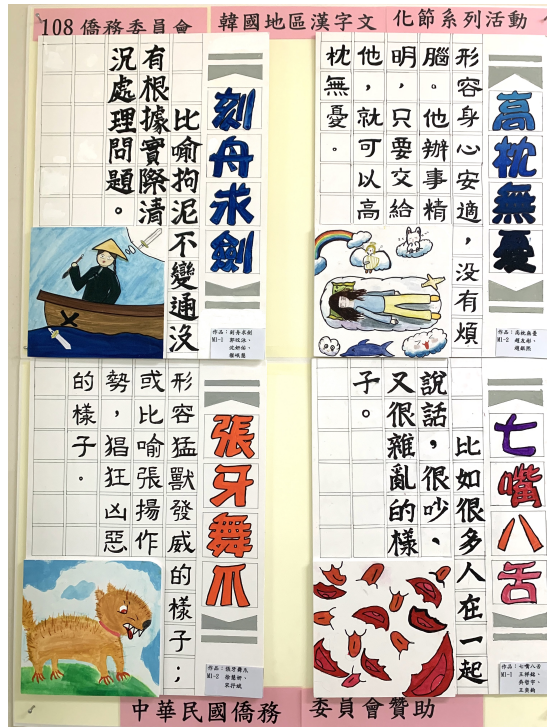 108 僑務委員會 韓國地區漢字文 化節系列活動
高枕無憂
形容身心安適，没有煩
腦。他辦事精
明，只要交給
他，就可以高
枕無憂。
作品：高枕無憂
M1-2
刻舟求劍
比喻拘泥不變通沒
有根據實際清
況處理問題。
作品：刻舟求劍
M1-1
七嘴八舌
比如很多人在一起
說話，很吵、
又很雜亂的樣
子。
作品：七嘴八舌
M1-1
張牙舞爪
形容猛獸發威的樣子；
或比喻張揚作
勢，猖狂凶惡
的樣子。
作品：張牙舞爪
M1-2
中華民國僑務 委員會贊助